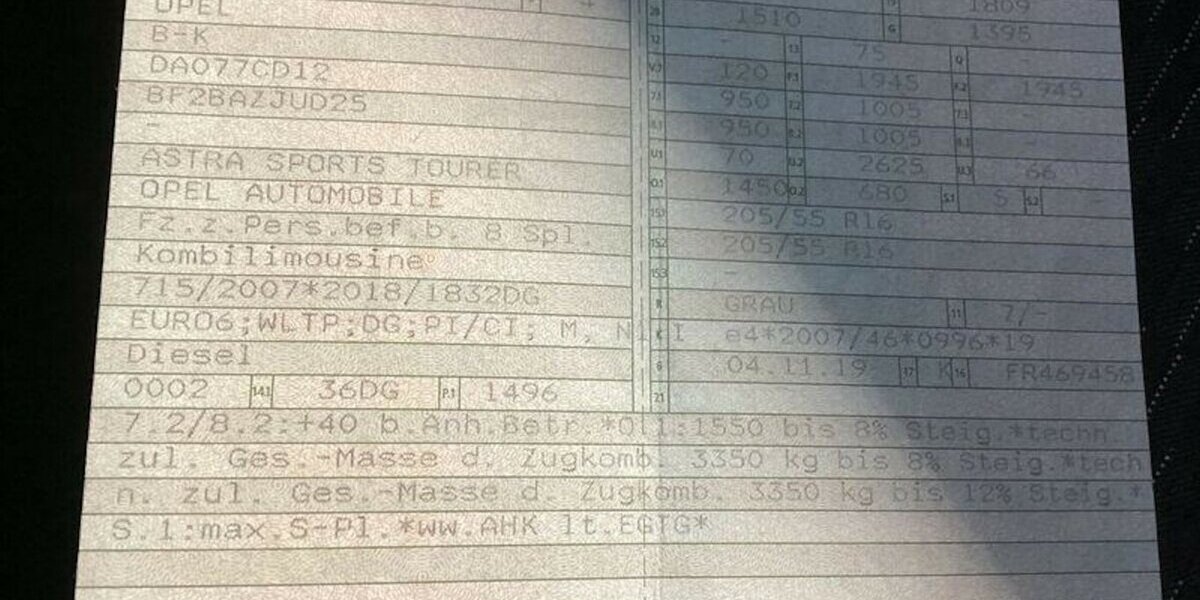 OPEL 4
B-K
DA077CD12
BF2BAZJUD25
-
ASTRA SPORTS TOURER
OPEL AUTOMOBILE
Fz.z.Pers.bef.b. 8 Spl.
Kombilimousine
715/2007*2018/1832DG
EURO6;WLTP;DG;PI/CI; M, N1 I
Diesel
0002 14.1 36DG P.1 1496
20 1510 1809
G 1395
12 - 13 75 Q -
V.7 120 F.1 1945 F.2 1945
7.1 950 7.2 1005 7.3 -
8.1 950 8.2 1005 8.3 -
U.1 70 U.2 2625 U.3 66
O.1 1450 O.2 680 S.1 5 S.2 -
15.1 205/55 R16
15.2 205/55 R16
15.3 -
R GRAU 11 7/-
K e4*2007/46*0996*19
6 04.11.19 17 K 16 FR469458
21
7.2/8.2:+40 b.Anh.Betr.*O.1:1550 bis 8% Steig.*techn.
zul. Ges.-Masse d. Zugkomb. 3350 kg bis 8% Steig.*tech
n. zul. Ges.-Masse d. Zugkomb. 3350 kg bis 12% Steig.*
S.1:max.S-Pl.*ww.AHK lt.EGTG*